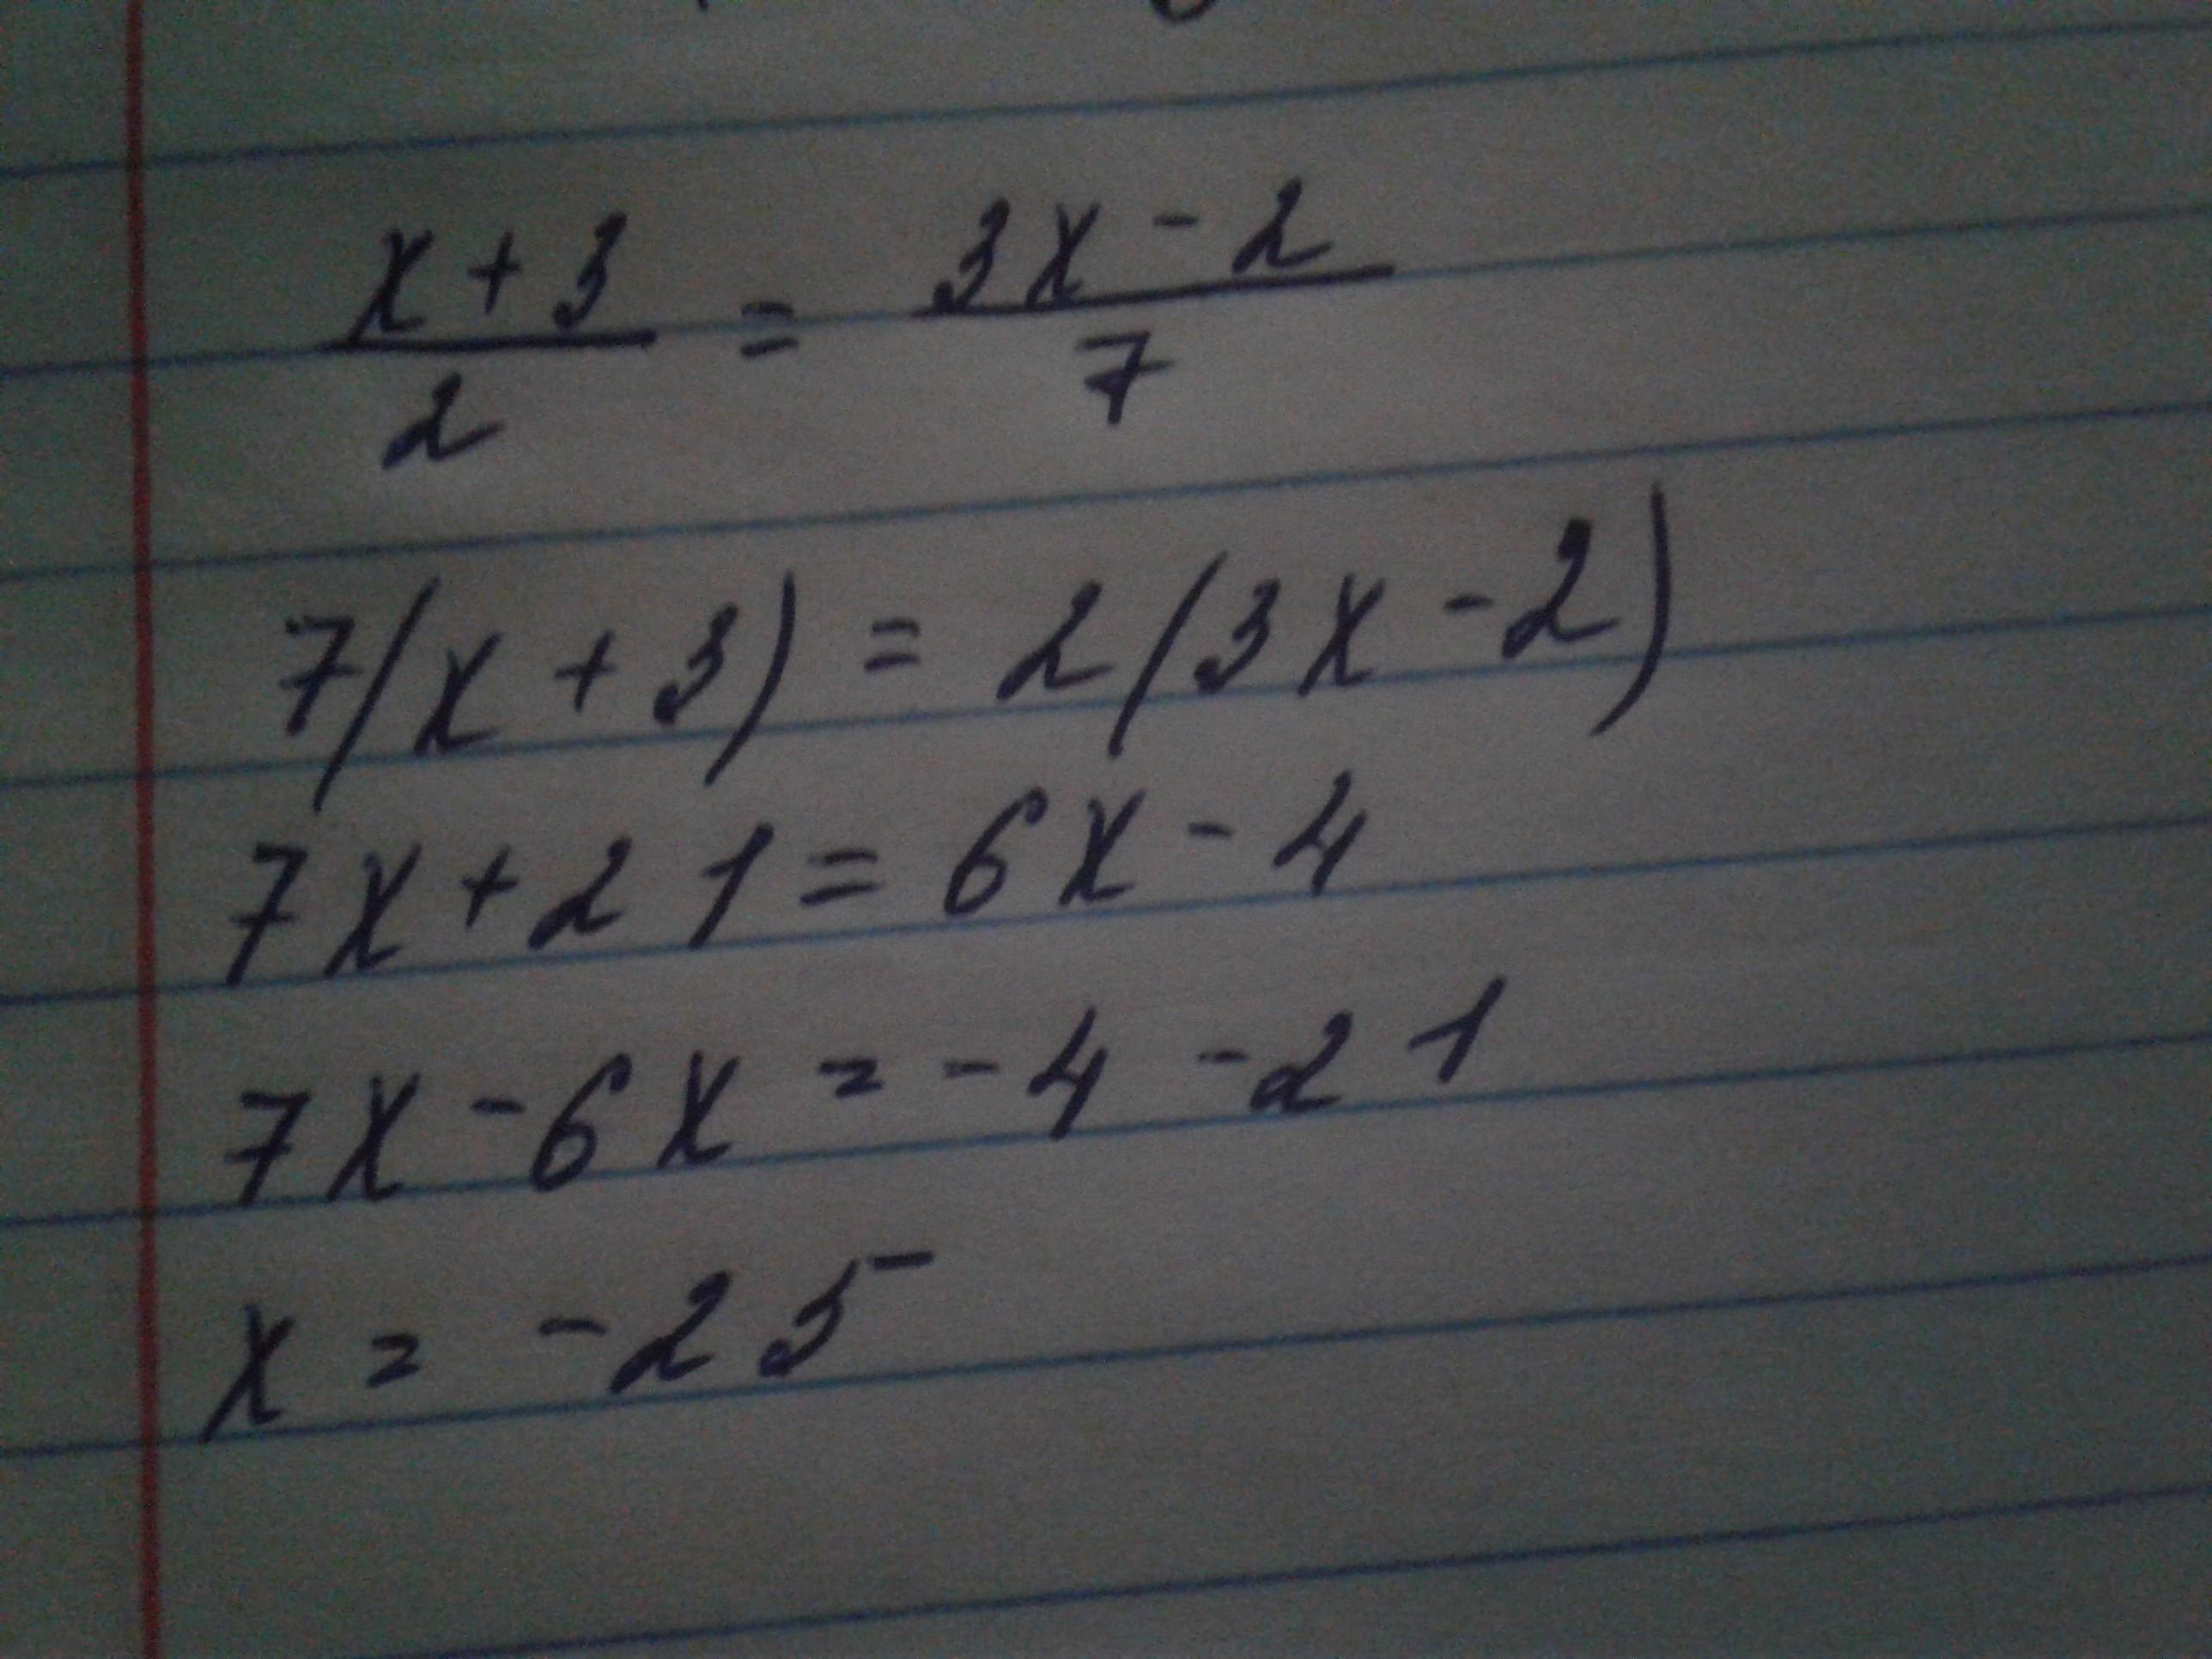 x + 3 / 2 = 3x - 2 / 7
7(x + 3) = 2(3x - 2)
7x + 21 = 6x - 4
7x - 6x = -4 - 21
x = -25